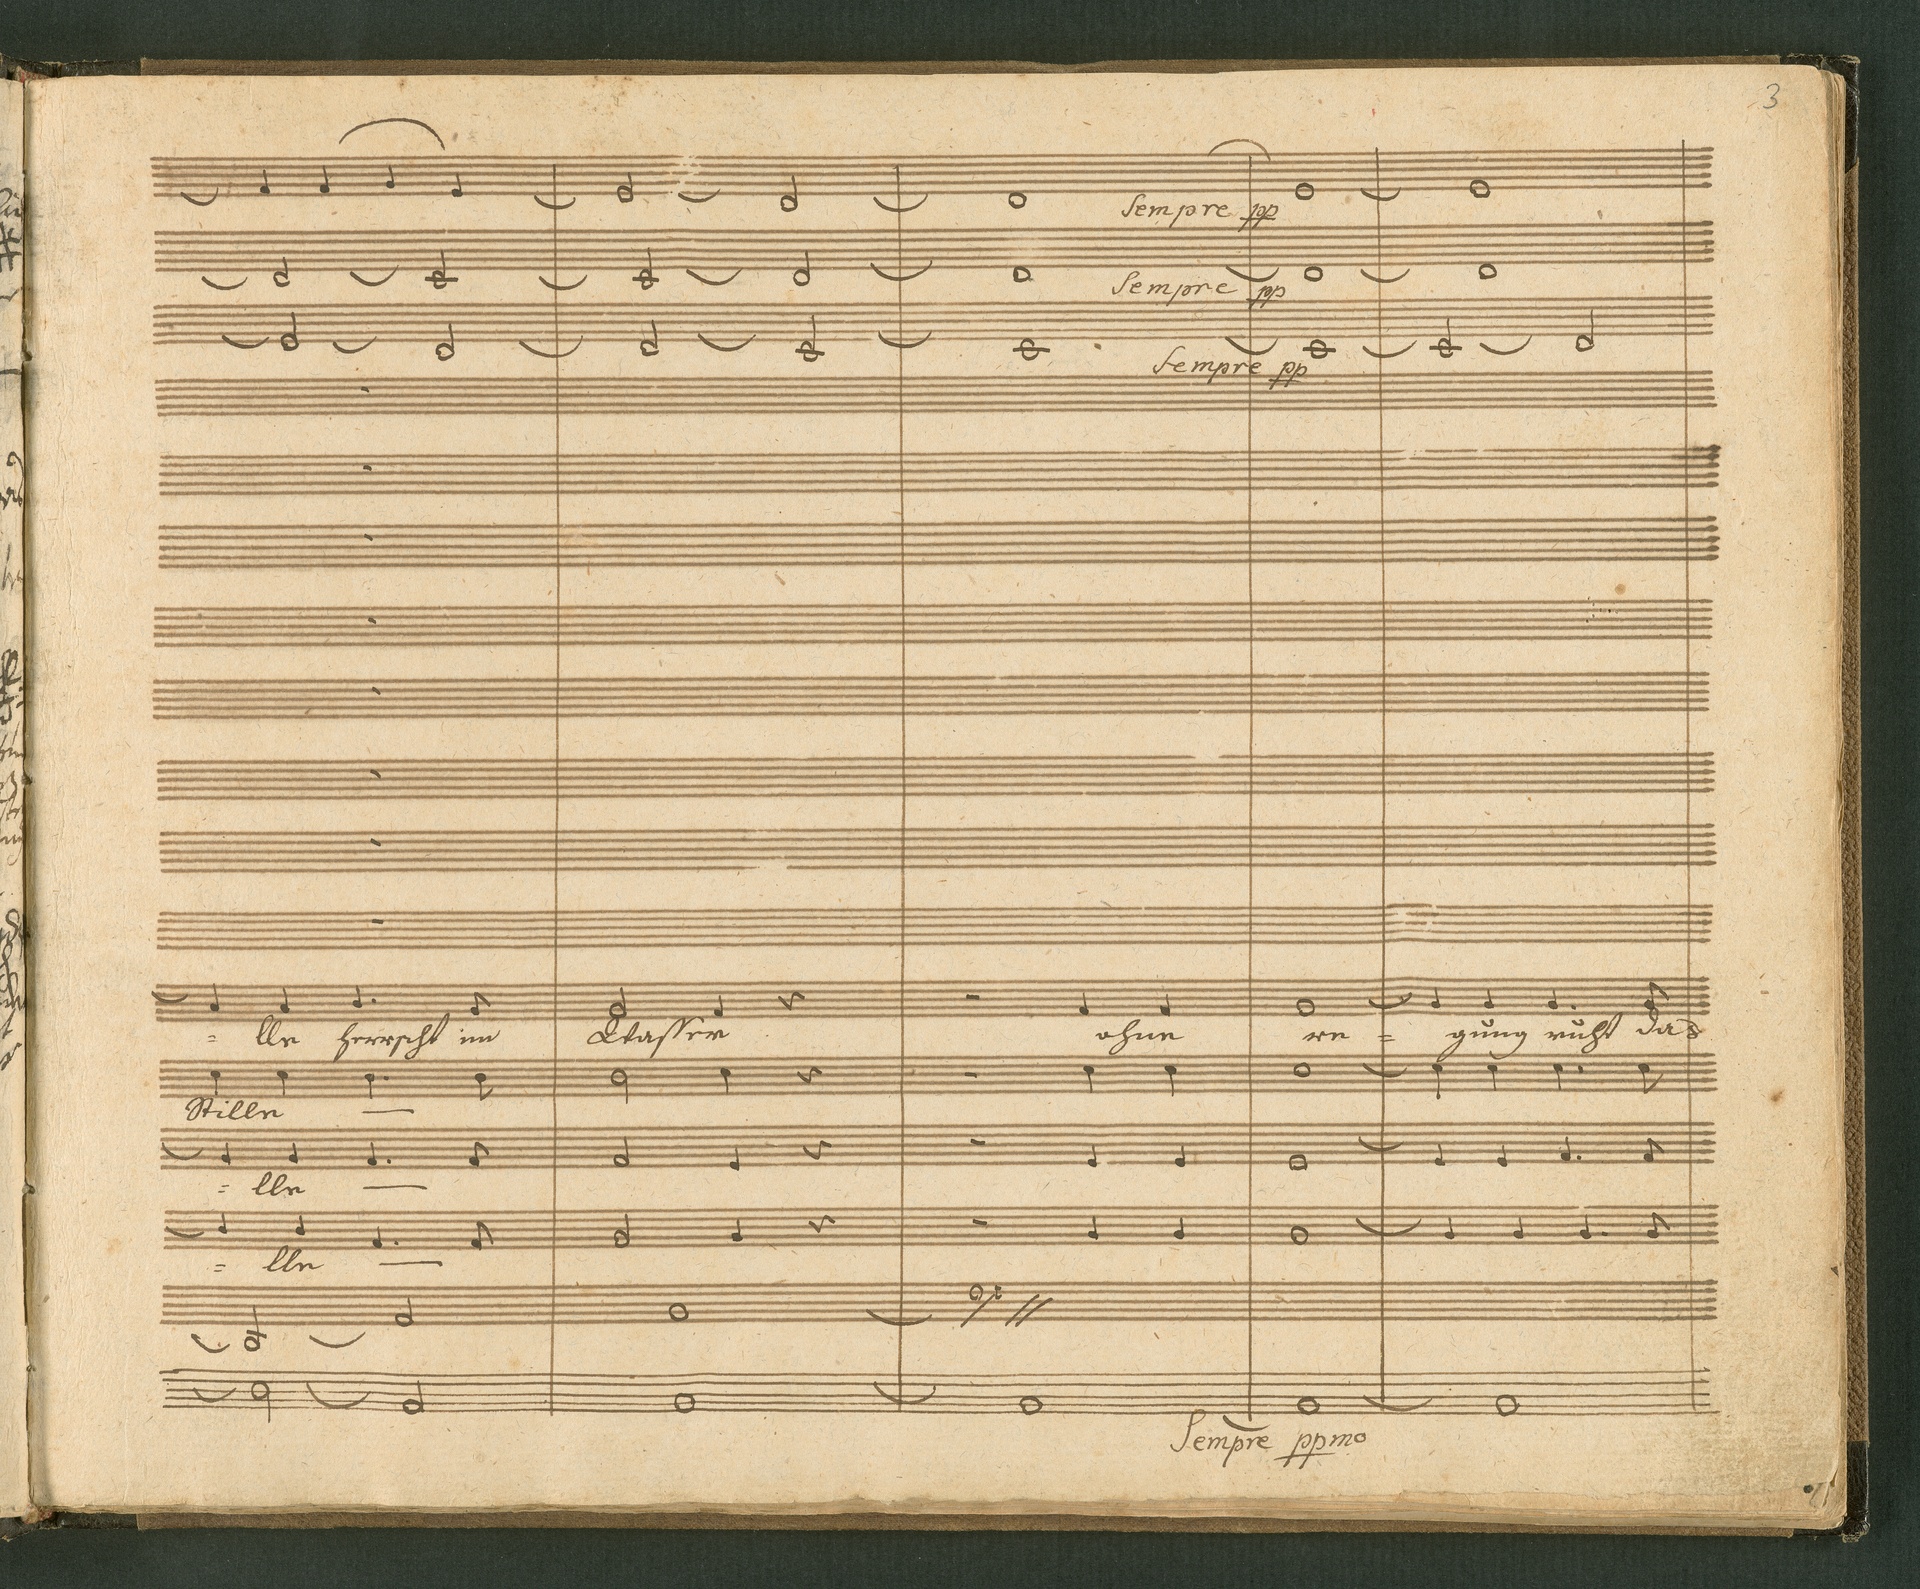 3
Sempre pp
Sempre pp
Sempre pp
= lle herrscht im Wasser ohne re = gung ruht das
Stille —
= lle —
= lle —
Sempre ppmo